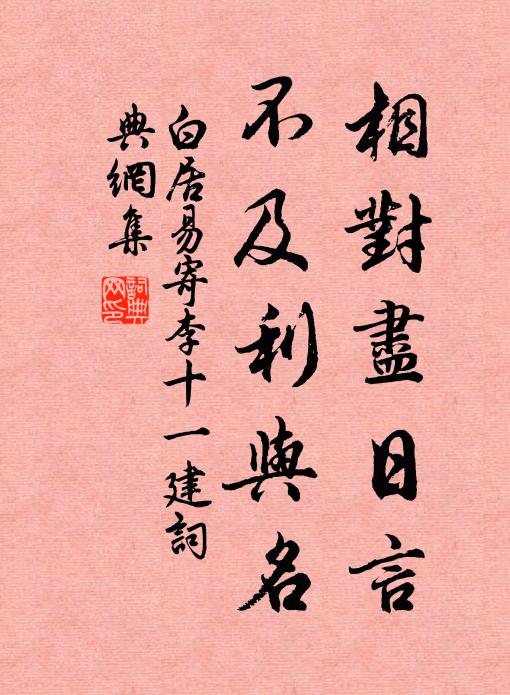 相對盡日言
不及利與名
白居易寄李十一建詞
典網集
詞典網印